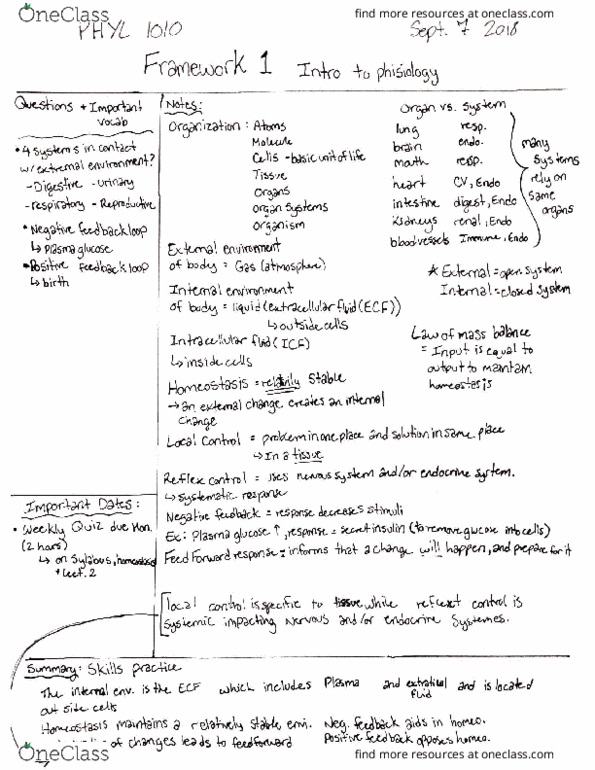 OneClass
find more resources at oneclass.com
PHYL 1010
Sept. 7 2018
Framework 1 Intro to phisiology
Questions + Important
vocab
• 4 systems in contact
w/ extremal environment?
- Digestive - urinary
- respiratory - Reproductive
• Negative feedback loop
↳ plasma glucose
• Positive feedback loop
↳ birth
Important Dates:
• Weekly Quiz due Mon.
(2 hours)
↳ on Syllabus, homeostasis
+ Lect. 2
Notes:
Organization: Atoms
Molecule
Cells - basic unit of life
Tissue
Organs
organ systems
organism
External environment
of body = Gas (atmosphere)
Internal environment
of body = liquid (extracellular fluid (ECF))
↳ outside cells
Intracellular fluid (ICF)
↳ inside cells
Homeostasis = relativly stable
→ an external change creates an internal
change
Local Control = problem in one place and solution in same place
↳ In a tissue
Reflex control = uses nervous system and/or endocrine system.
↳ systematic response
Negative feedback = response decreases stimuli
Ex: Plasma glucose ↑, response = secret insulin (to remove glucose into cells)
Feed Forward response = informs that a change will happen, and prepare for it
local control is specific to tissue while reflext control is
systemic impacting Nervous and/or endocrine Systemes.
Organ vs. System
lung resp.
brain endo.
mouth resp.
heart CV, Endo
intestine digest, Endo
kidneys renal, Endo
blood vessels Immune, Endo
many
systems
rely on
same
organs
* External = open system
Internal = closed system
Law of mass balance
= Input is equal to
output to maintain
homeostasis
Summary: Skills practice
The internal env. is the ECF which includes Plasma and fluid and is located
out side cells
Homeostasis maintains a relatively stable envi. Neg. feedback aids in homeo.
of changes leads to feedforward Positive feedback opposes homeo.
OneClass
find more resources at oneclass.com